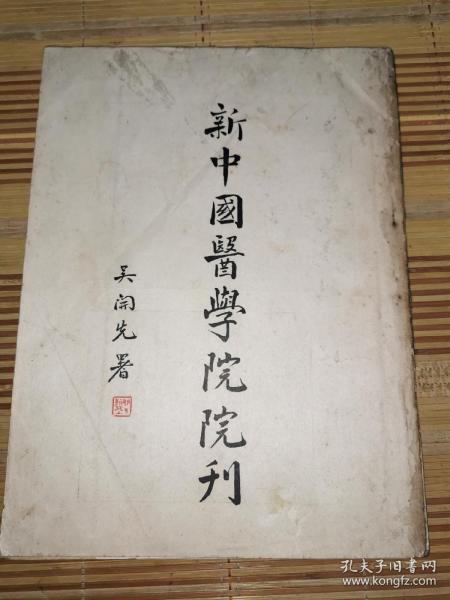 新中國醫學院院刊
吴開先署
孔夫子旧书网
www.kongfz.com